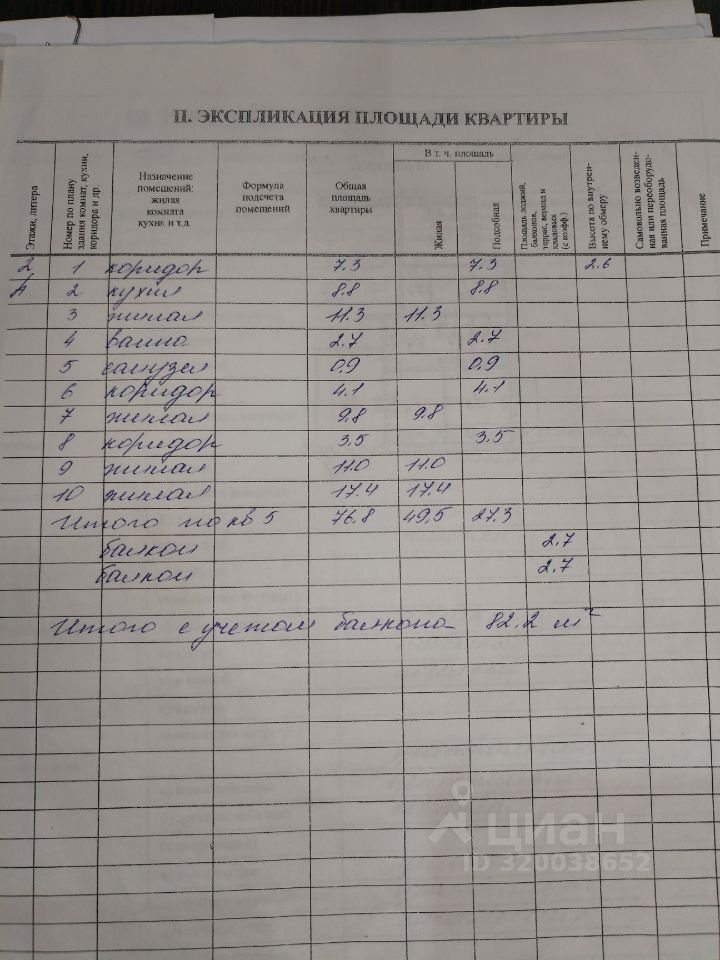 II. ЭКСПЛИКАЦИЯ ПЛОЩАДИ КВАРТИРЫ
Этажи, литера
Номер по плану здания комнат, кухни, коридора и др.
Назначение помещений: жилая комната кухня и т.д.
Формула подсчета помещений
Общая площадь квартиры
В т. ч. площадь
Жилая
Подсобная
Площадь лоджий, балконов, террас, веранд и кладовых (с коэфф.)
Высота по внутреннему обмеру
Самовольно возведенная или переоборудованная площадь
Примечание
2 1 коридор 7.3 7.3 2.6
А 2 кухня 8.8 8.8
3 жилая 11.3 11.3
4 ванна 2.7 2.7
5 санузел 0,9 0,9
6 коридор 4.1 4.1
7 жилая 9.8 9.8
8 коридор 3.5 3.5
9 жилая 11.0 11.0
10 жилая 17.4 17.4
Итого по кв 5 76.8 49,5 27.3
балкон 2.7
балкон 2.7
Итого с учетом балкона 82.2 м²
циан
ID 320038652